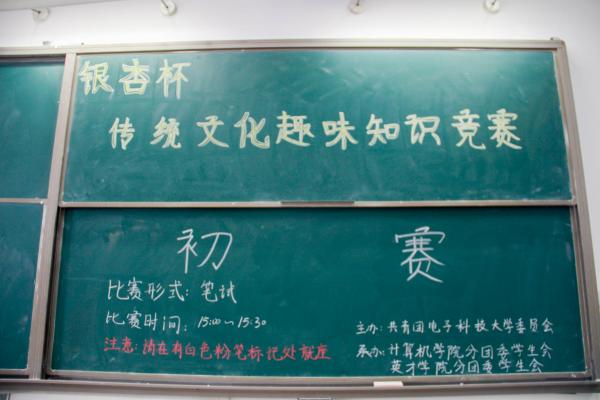 银杏杯
传统文化趣味知识竞赛
初 赛
比赛形式: 笔试
比赛时间: 15:00~15:30
注意: 请在有白色粉笔标记处就座
主办: 共青团电子科技大学委员会
承办: 计算机学院分团委学生会
英才学院分团委学生会